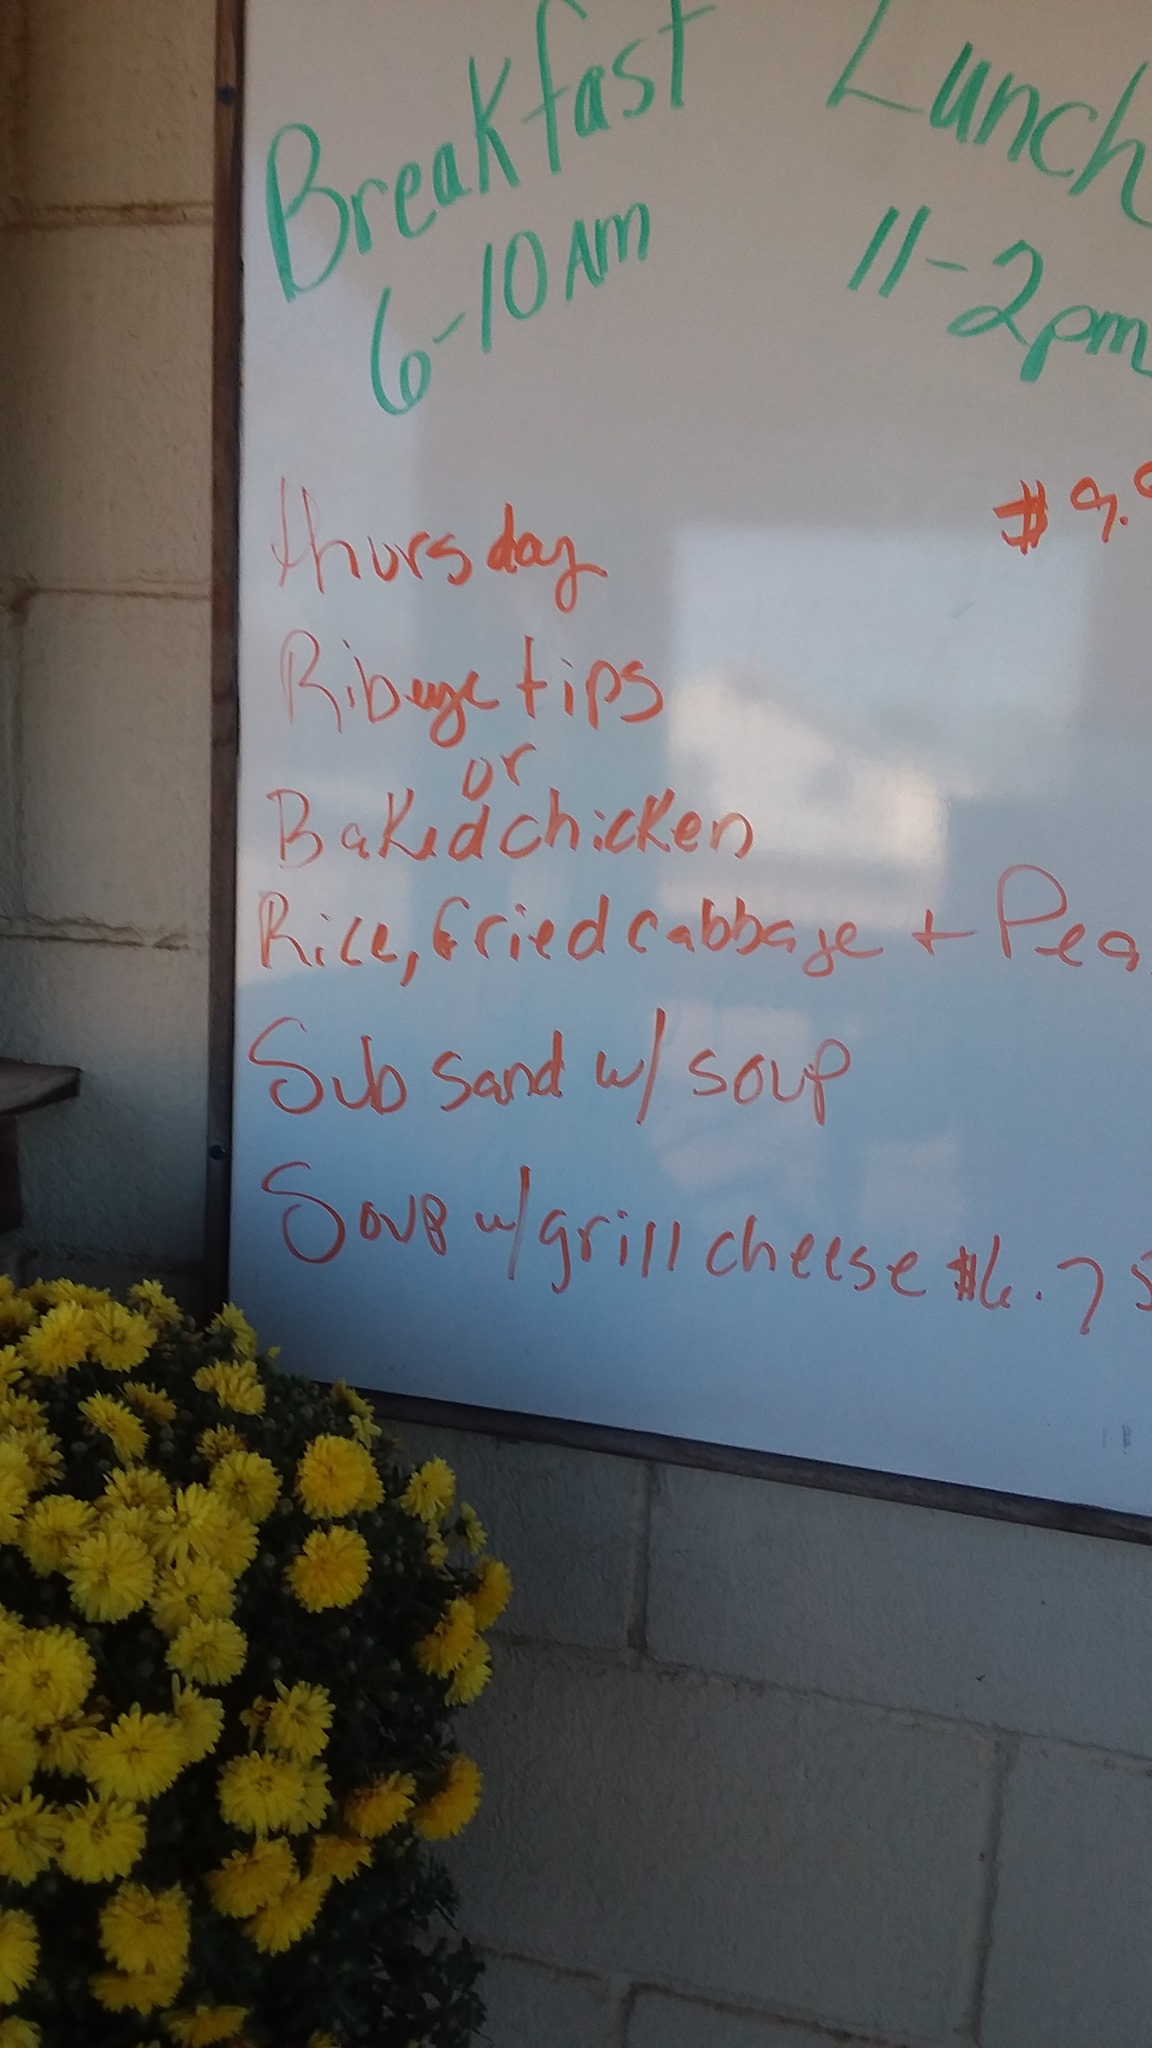 Breakfast Lunch
6-10AM 11-2pm
thursday $9.9
Ribeye tips
or
Baked chicken
Rice, fried cabbage + Pea
Sub sand w/ soup
Soup w/ grill cheese $6.75